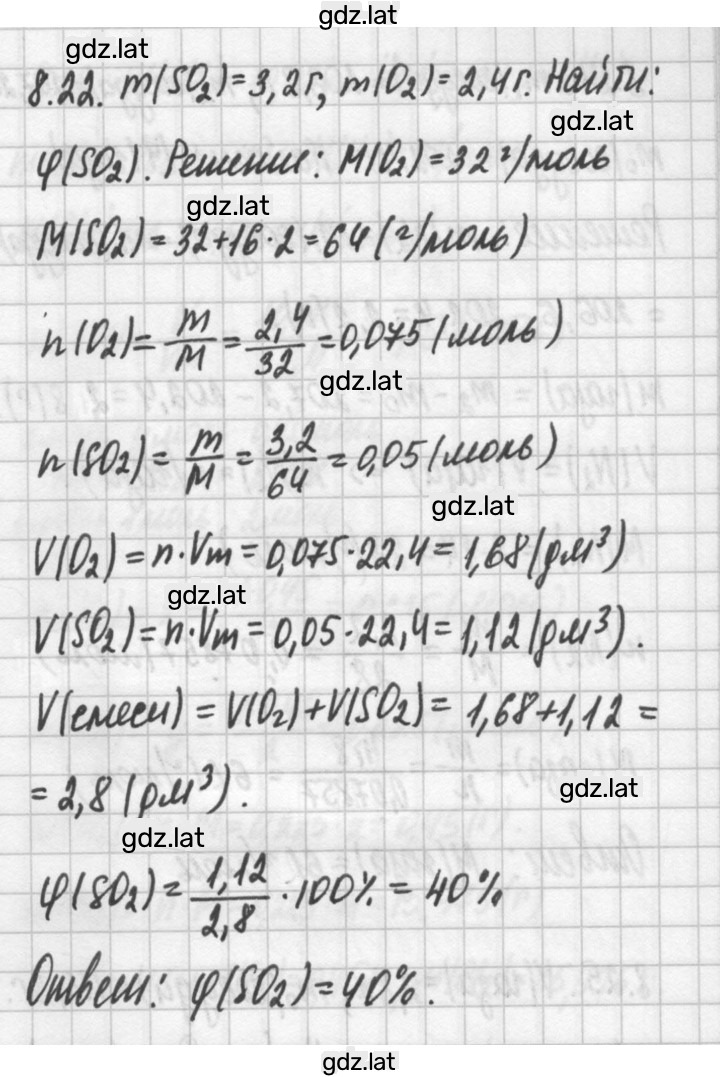 gdz.lat
gdz.lat
8.22. m(SO₂)=3,2г, m(O₂)=2,4г. Найти:
gdz.lat
φ(SO₂). Решение: M(O₂)=32 г/моль
gdz.lat
M(SO₂)=32+16·2=64 (г/моль)
n(O₂)= m/M = 2,4/32 =0,075(моль)
gdz.lat
n(SO₂)= m/M = 3,2/64 =0,05(моль)
gdz.lat
V(O₂)=n·Vm=0,075·22,4=1,68(дм³)
gdz.lat
V(SO₂)=n·Vm=0,05·22,4=1,12(дм³).
V(смеси)=V(O₂)+V(SO₂)=1,68+1,12=
=2,8(дм³).
gdz.lat
gdz.lat
φ(SO₂)= 1,12/2,8 ·100%=40%
Ответ: φ(SO₂)=40%.
gdz.lat